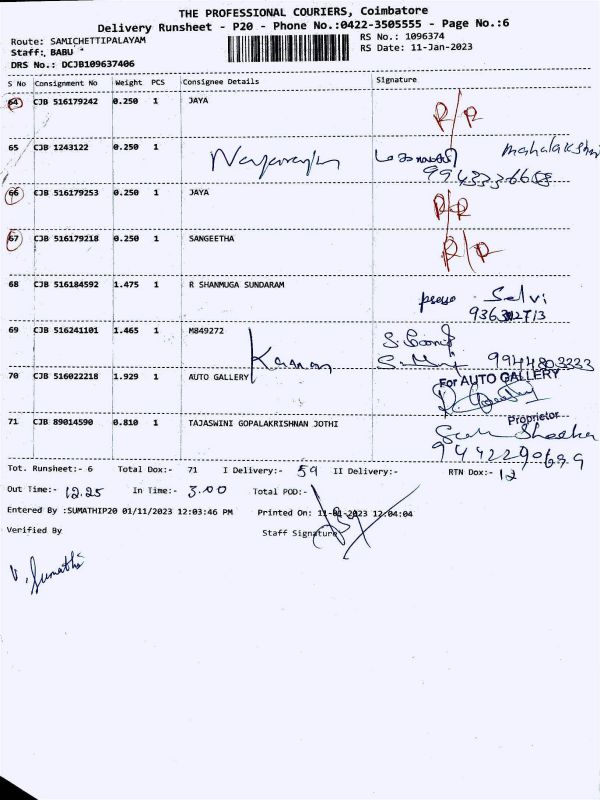 THE PROFESSIONAL COURIERS, Coimbatore
Delivery Runsheet - P20 - Phone No.:0422-3505555 - Page No.:6
Route: SAMICHETTIPALAYAM
RS No.: 1096374
Staff: BABU
RS Date: 11-Jan-2023
DRS No.: DCJB109637406
S No Consignment No Weight PCS Consignee Details Signature
64 CJB 516179242 0.250 1 JAYA R/R
65 CJB 1243122 0.250 1 Mahalakshmi
66 CJB 516179253 0.250 1 JAYA R/R
67 CJB 516179218 0.250 1 SANGEETHA R/R
68 CJB 516184592 1.475 1 R SHANMUGA SUNDARAM Selvi
69 CJB 516241101 1.465 1 M849272 Kannan
9944803333
70 CJB 516022218 1.929 1 AUTO GALLERY For AUTO GALLERY
Proprietor
71 CJB 89014590 0.810 1 TAJASWINI GOPALAKRISHNAN JOTHI
9442290699
Tot. Runsheet:- 6 Total Dox:- 71 I Delivery:- 59 II Delivery:- RTN Dox:- 12
Out Time:- 12.25 In Time:- 3.00 Total POD:-
Entered By :SUMATHIP20 01/11/2023 12:03:46 PM Printed On: 11-01-2023 12:04:04
Verified By Staff Signature
V. Sumathi